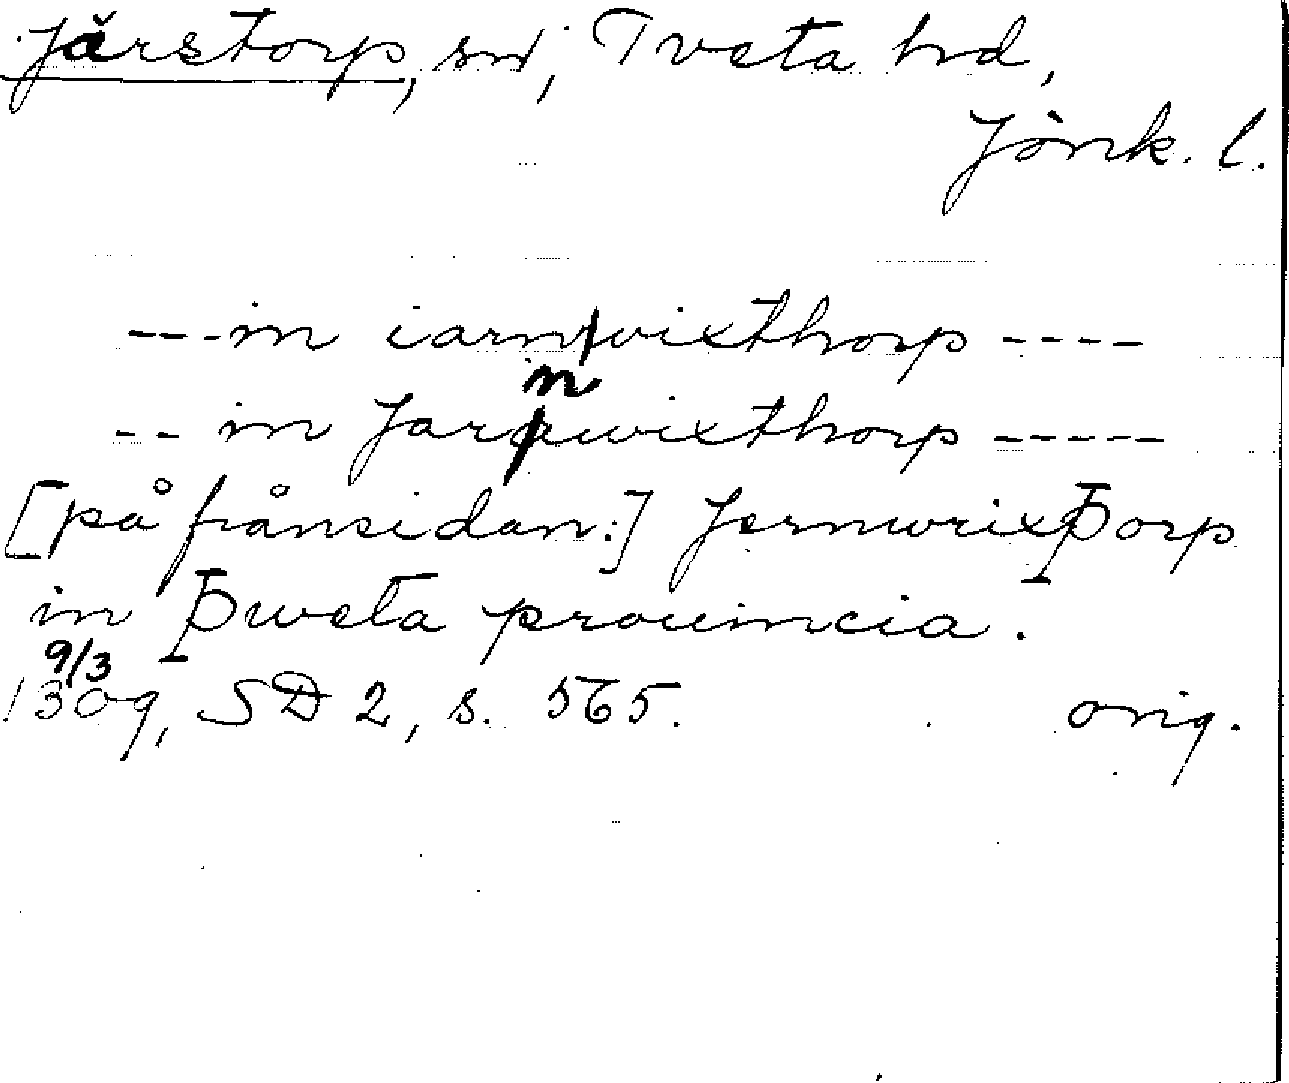 Järstorp, sn, Tveta hd,
Jönk. l.
---in iarn/vixthorp ----
-- in Jarnwixthorp -----
[på frånsidan:] Jernwrixþorp
in Þweta prouincia.
9/3
1309, SD 2, s. 565. orig.